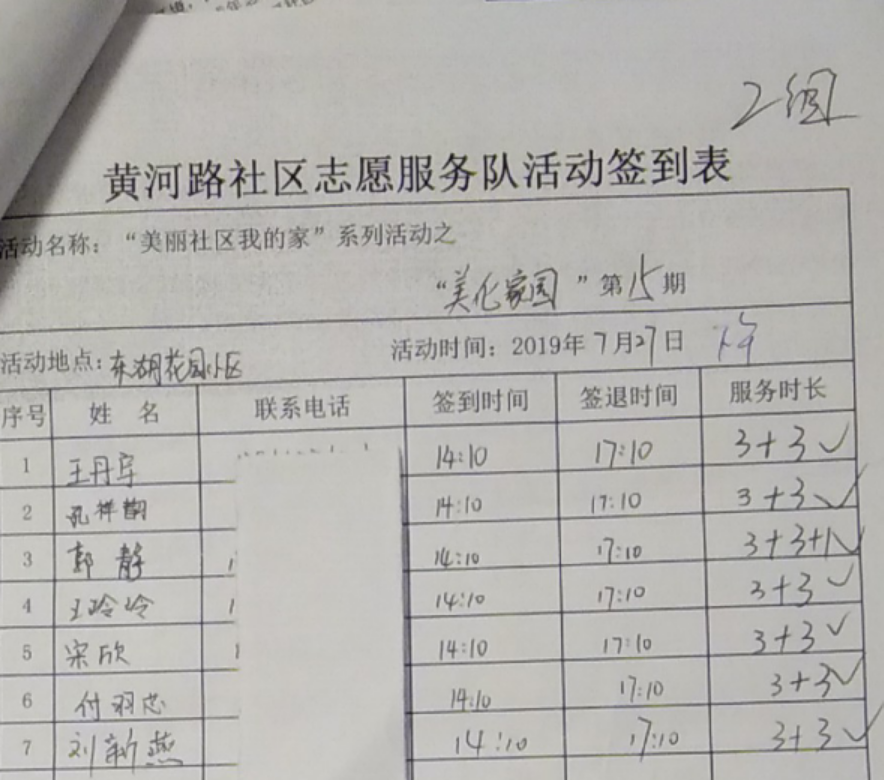 2组
黄河路社区志愿服务队活动签到表
活动名称：“美丽社区我的家”系列活动之
“美化家园”第15期
活动地点：东湖花园小区 活动时间：2019年7月27日 下午
序号 姓 名 联系电话 签到时间 签退时间 服务时长
1 王丹宇 14:10 17:10 3+3✓
2 孔祥鹏 14:10 17:10 3+3✓
3 郭静 14:10 17:10 3+3+1✓
4 王玲玲 14:10 17:10 3+3✓
5 宋欣 14:10 17:10 3+3✓
6 付羽忠 14:10 17:10 3+3✓
7 刘新燕 14:10 17:10 3+3✓